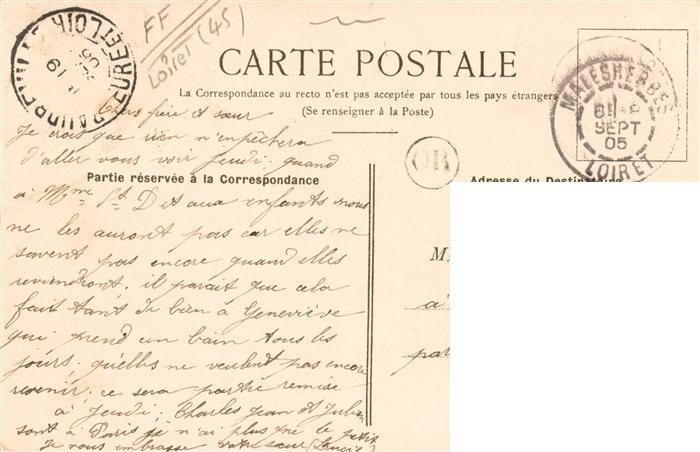 FF
Loiret (45)
CARTE POSTALE
La Correspondance au recto n'est pas acceptée par tous les pays étrangers
(Se renseigner à la Poste)
EURE ET LOIR
MALESHERBES
SEPT
05
LOIRET
OR
Partie réservée à la Correspondance
Adresse du Destinataire
Chers frère et sœur
Je crois que rien n'enpêchera
d'aller vous voir Jeudi; quand
a Mme St D et aux enfants nous
ne les auront pas car elles ne
savent pas encore quand elles
reviendront. il parait que cela
fait tant de bien à Geneviève
qui prend un bain tous les
jours, qu'elles ne veulent pas encore
revenir; ce sera partie remise
à Jeudi; Charles Jean et Julien
sont à Paris je n'ai plus que le petit
Je vous embrasse votre sœur Lucie
M
à
par